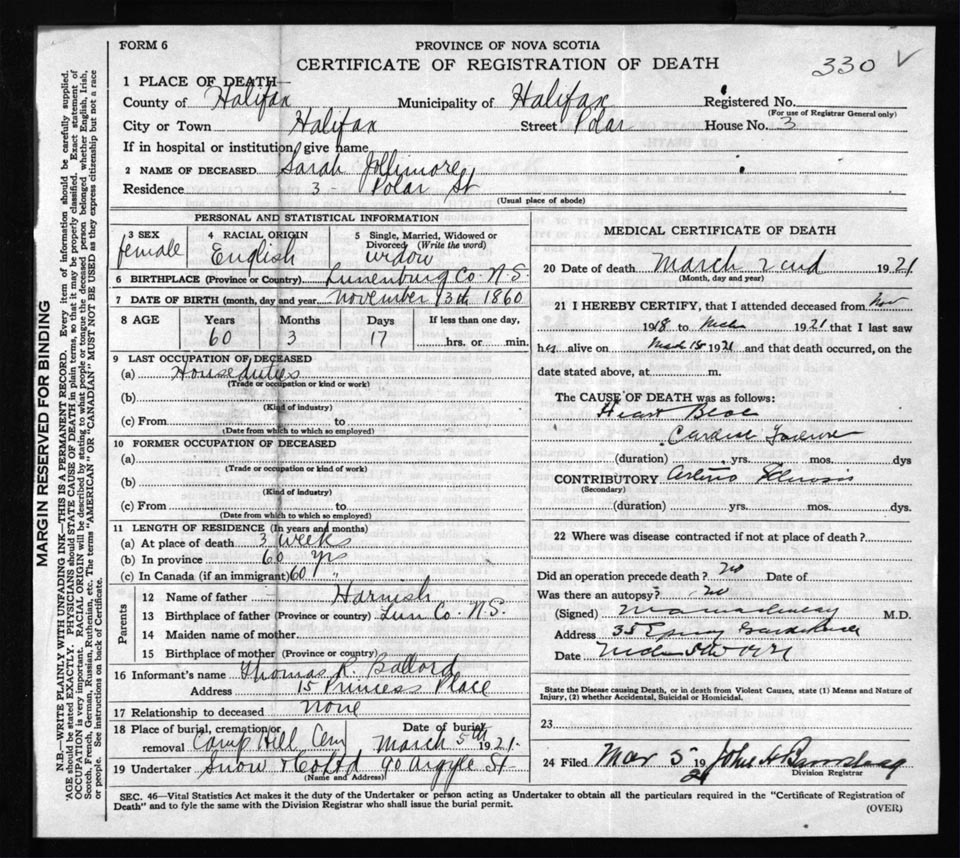 FORM 6
PROVINCE OF NOVA SCOTIA
CERTIFICATE OF REGISTRATION OF DEATH
330 √
1 PLACE OF DEATH—
County of Halifax Municipality of Halifax Registered No.
(For use of Registrar General only)
City or Town Halifax Street Polar House No. 3
If in hospital or institution, give name
2 NAME OF DECEASED Sarah Jollimore
Residence 3 - Polar St
(Usual place of abode)
PERSONAL AND STATISTICAL INFORMATION
3 SEX
female
4 RACIAL ORIGIN
English
5 Single, Married, Widowed or
Divorced (Write the word)
widow
6 BIRTHPLACE (Province or Country) Lunenburg Co N.S.
7 DATE OF BIRTH (month, day and year) november 13th 1860
8 AGE Years Months Days If less than one day,
60 3 17 hrs. or min.
9 LAST OCCUPATION OF DECEASED
(a) House duties
(Trade or occupation or kind or work)
(b)
(Kind of industry)
(c) From to
(Date from which to which so employed)
10 FORMER OCCUPATION OF DECEASED
(a)
(Trade or occupation or kind of work)
(b)
(Kind of industry)
(c) From to
(Date from which to which so employed)
11 LENGTH OF RESIDENCE (In years and months)
(a) At place of death 3 weeks
(b) In province 60 yrs
(c) In Canada (if an immigrant) 60 "
Parents
12 Name of father Harnish
13 Birthplace of father (Province or country) Lun Co. N.S.
14 Maiden name of mother
15 Birthplace of mother (Province or country)
16 Informant's name Thomas R. Ballord
Address 15 Princess Place
17 Relationship to deceased none
18 Place of burial, cremation or removal Camp Hill Cem Date of burial March 5th 1921.
19 Undertaker Snow & Co Ltd 90 Argyle St
(Name and Address)
MEDICAL CERTIFICATE OF DEATH
20 Date of death March 2nd 1921
(Month, day and year)
21 I HEREBY CERTIFY, that I attended deceased from Nov
1918 to Mch 1921 that I last saw
her alive on 1921 and that death occurred, on the
date stated above, at m.
The CAUSE OF DEATH was as follows:
Heart
Cardiac Failure
(duration) yrs. mos. dys
CONTRIBUTORY Arterio Sclerosis
(Secondary)
(duration) yrs. mos. dys.
22 Where was disease contracted if not at place of death?
Did an operation precede death? no Date of
Was there an autopsy? no
(Signed) M.D.
Address 35
Date
State the Disease causing Death, or in death from Violent Causes, state (1) Means and Nature of
Injury, (2) whether Accidental, Suicidal or Homicidal.
23
24 Filed Mar 5 1921 John
Division Registrar
SEC. 46—Vital Statistics Act makes it the duty of the Undertaker or person acting as Undertaker to obtain all the particulars required in the "Certificate of Registration of
Death" and to fyle the same with the Division Registrar who shall issue the burial permit.
(OVER)
MARGIN RESERVED FOR BINDING
N.B.—WRITE PLAINLY WITH UNFADING INK—THIS IS A PERMANENT RECORD. Every item of information should be carefully supplied.
AGE should be stated EXACTLY. PHYSICIANS should STATE CAUSE OF DEATH in plain terms, so that it may be properly classified. Exact statement of
OCCUPATION is very important. RACIAL ORIGIN will be described by stating to what people or tongue the deceased person belonged whether English, Irish,
Scotch, French, German, Russian, Ruthenian, etc. The terms "AMERICAN" OR "CANADIAN" MUST NOT BE USED as they express citizenship but not a race
or people. See instructions on back of Certificate.